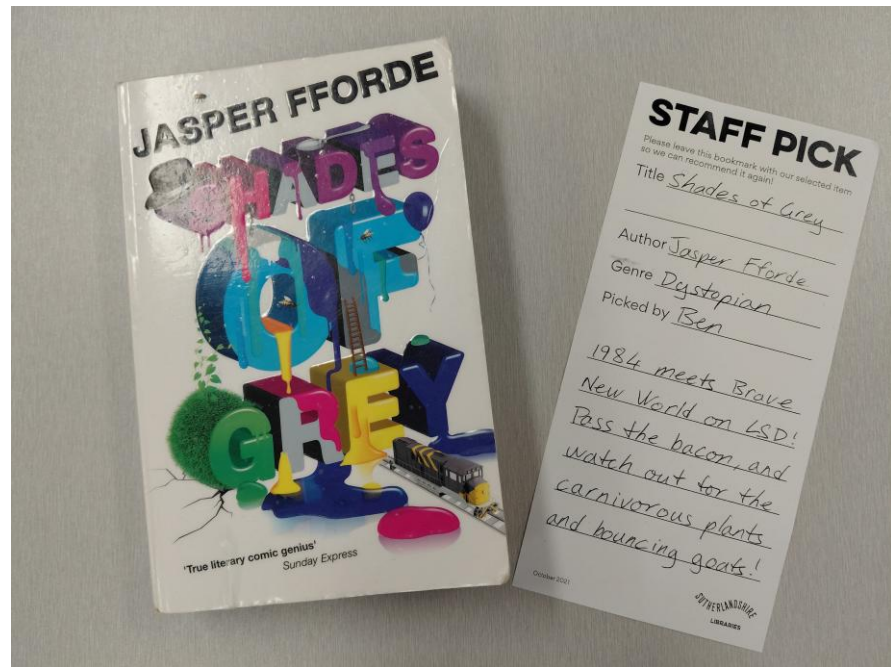 JASPER FFORDE
SHADES
OF
GREY
'True literary comic genius'
Sunday Express
STAFF PICK
Please leave this bookmark with our selected item
so we can recommend it again!
Title Shades of Grey
Author Jasper Fforde
Genre Dystopian
Picked by Ben
1984 meets Brave
New World on LSD!
Pass the bacon, and
watch out for the
carnivorous plants
and bouncing goats!
October 2021
SUTHERLANDSHIRE
LIBRARIES